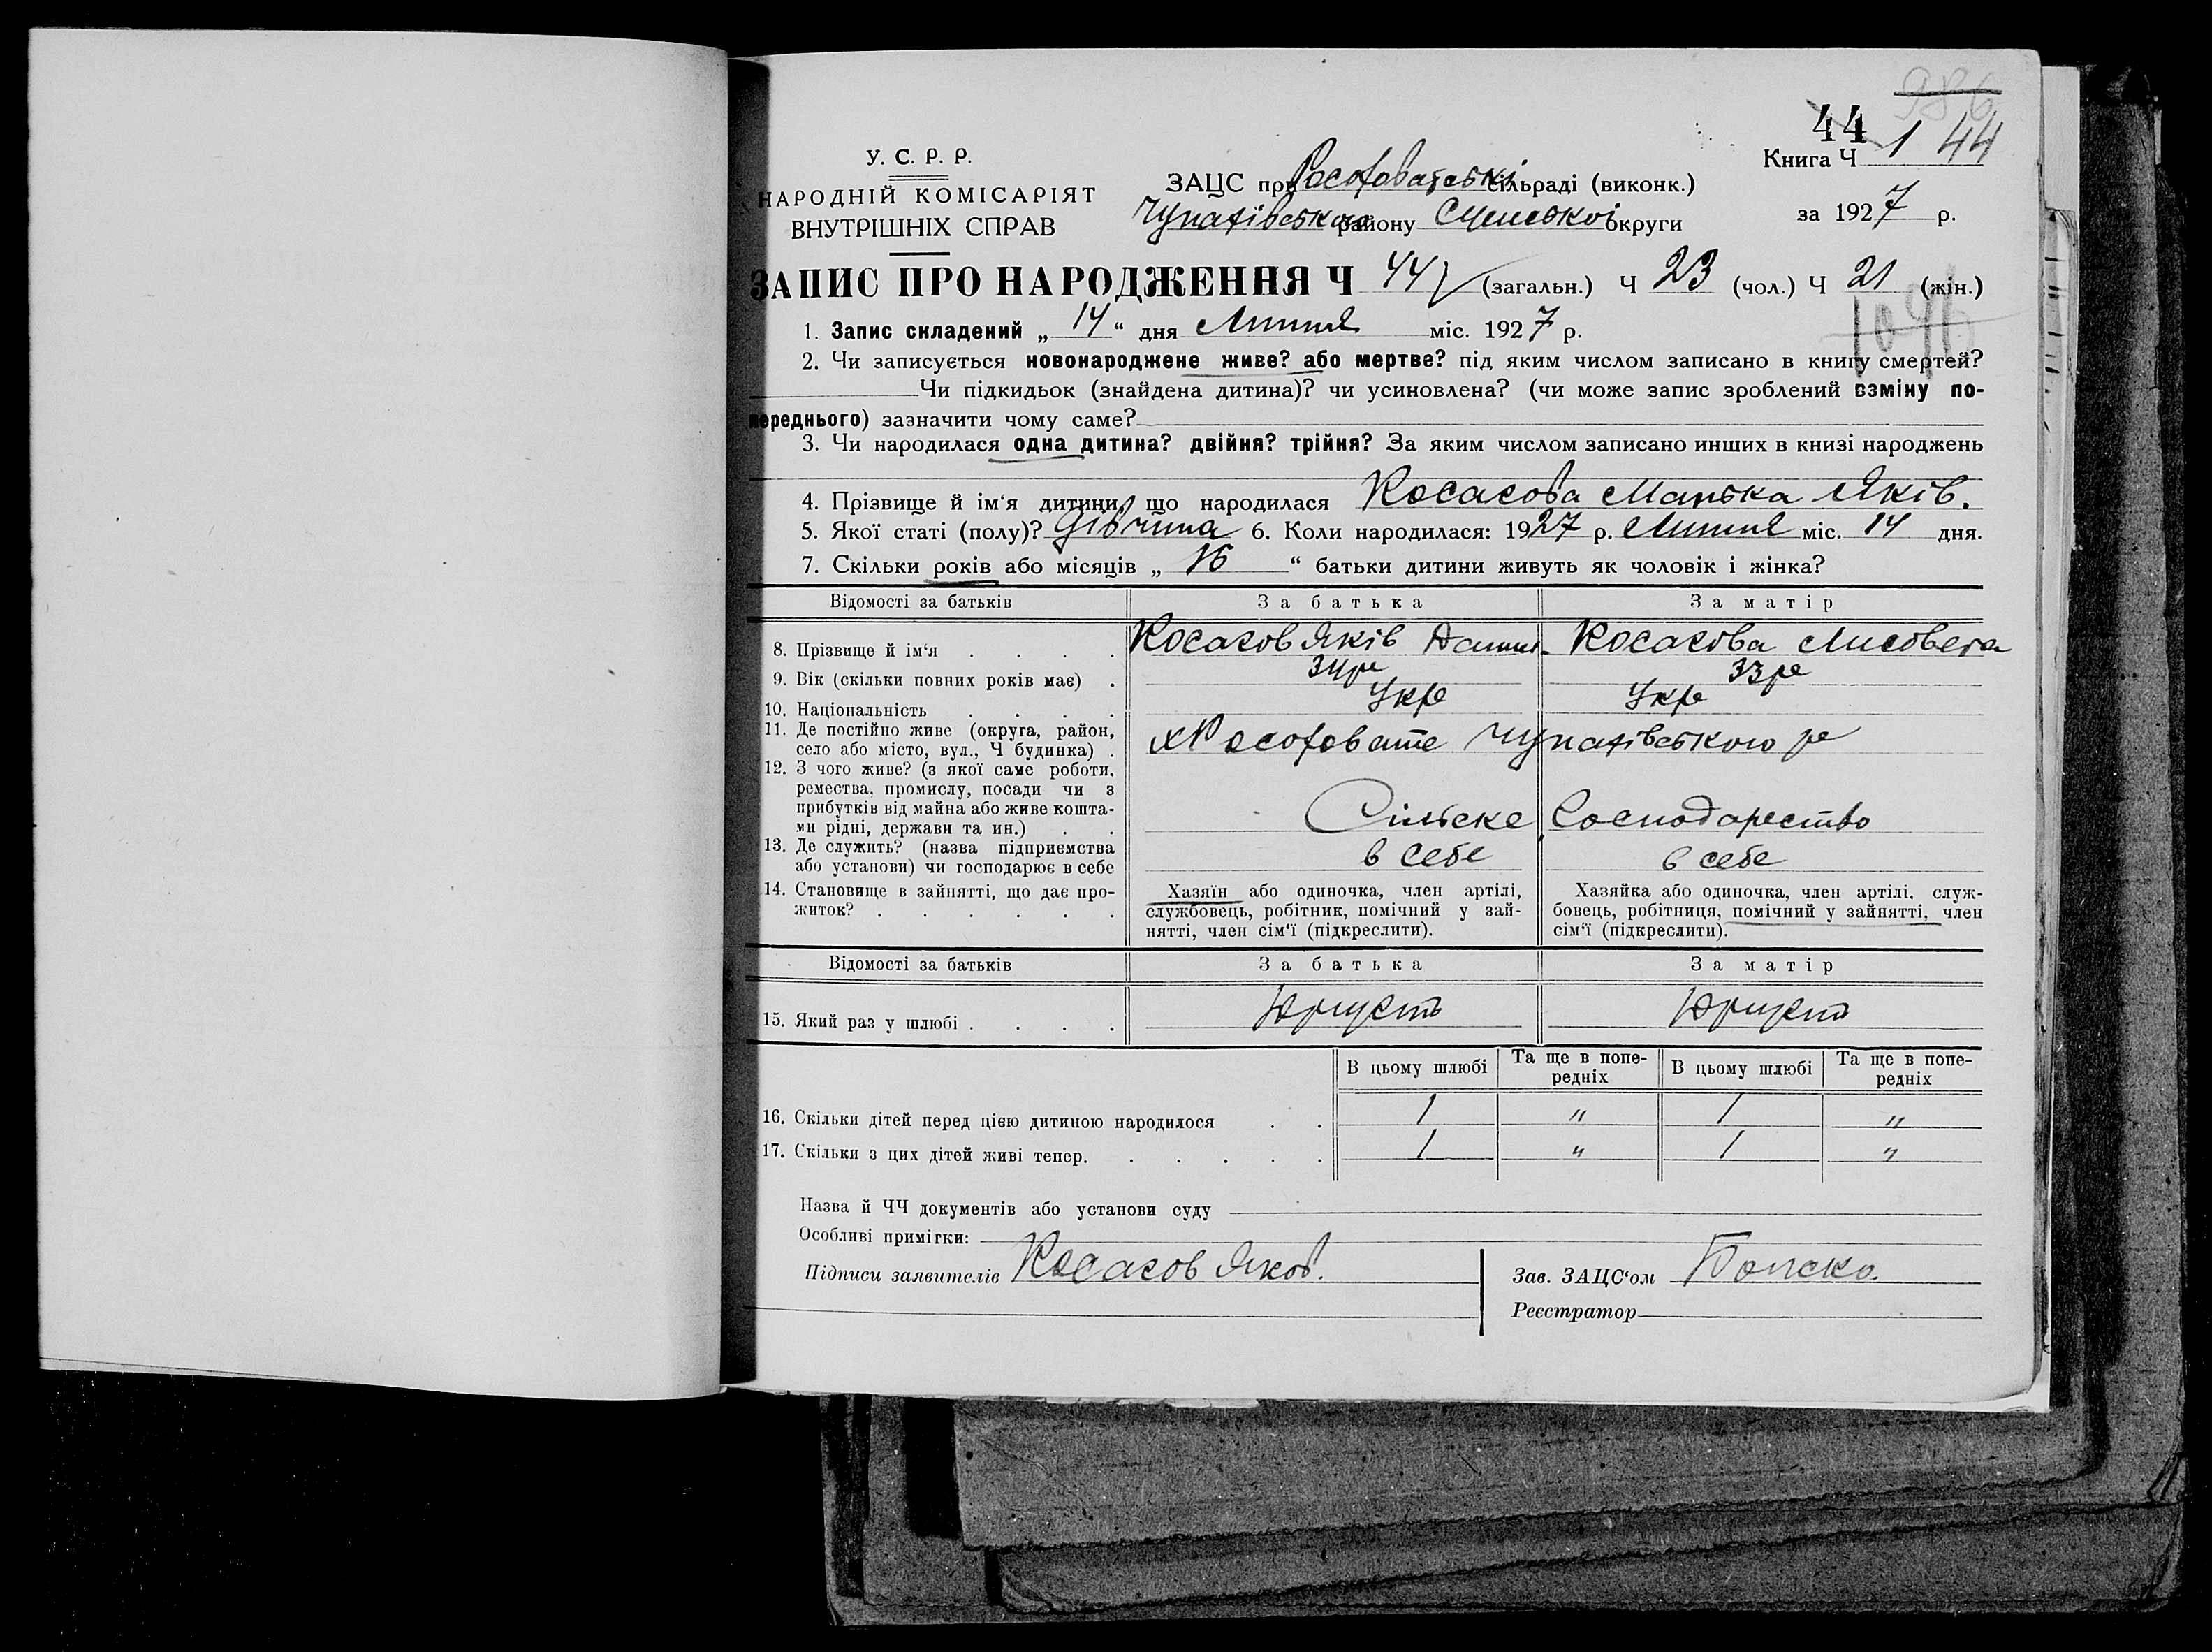 986
44
Книга Ч 1 44
У. С. Р. Р.
НАРОДНІЙ КОМІСАРІЯТ
ВНУТРІШНІХ СПРАВ
ЗАЦС при Росоховатські сільраді (виконк.)
Чупахівського району Сумської округи
за 1927 р.
ЗАПИС ПРО НАРОДЖЕННЯ Ч 44 (загальн.) Ч 23 (чол.) Ч 21 (жін.)
1. Запис складений „ 14 “ дня Липня міс. 1927 р.
2. Чи записується новонароджене живе? або мертве? під яким числом записано в книгу смертей?
Чи підкидьок (знайдена дитина)? чи усиновлена? (чи може запис зроблений взміну по-
переднього) зазначити чому саме?
3. Чи народилася одна дитина? двійня? трійня? За яким числом записано инших в книзі народжень
4. Прізвище й ім‘я дитини, що народилася Косагова Марька Яків.
5. Якої статі (полу)? дівчина 6. Коли народилася: 1927 р. Липня міс. 14 дня.
7. Скільки років або місяців „ 16 “ батьки дитини живуть як чоловік і жінка?
Відомості за батьків За батька За матір
8. Прізвище й ім‘я . . . . Косагов Яків Данил. Косагова Лисовета
9. Вік (скільки повних років має) . 34р 33р
10. Національність . . . . Укр Укр
11. Де постійно живе (округа, район,
село або місто, вул., Ч будинка) . х Росоховате Чупахівського р
12. З чого живе? (з якої саме роботи,
ремества, промислу, посади чи з
прибутків від майна або живе кошта-
ми рідні, держави та ин.) . . Сільске Господарество
13. Де служить? (назва підприємства
або установи) чи господарює в себе в себе в себе
14. Становище в зайнятті, що дає про-
житок? . . . . . .
Хазяїн або одиночка, член артілі,
службовець, робітник, помічний у зай-
нятті, член сім‘ї (підкреслити).
Хазяйка або одиночка, член артілі, служ-
бовець, робітниця, помічний у зайнятті, член
сім‘ї (підкреслити).
Відомості за батьків За батька За матір
15. Який раз у шлюбі . . . .
В цьому шлюбі Та ще в попе-редніх В цьому шлюбі Та ще в попе-редніх
16. Скільки дітей перед цією дитиною народилося . . 1 " 1 "
17. Скільки з цих дітей живі тепер. . . . . . 1 " 1 "
Назва й ЧЧ документів або установи суду
Особливі примітки:
Підписи заявителів Косагов Яков.
Зав. ЗАЦС‘ом
Реєстратор